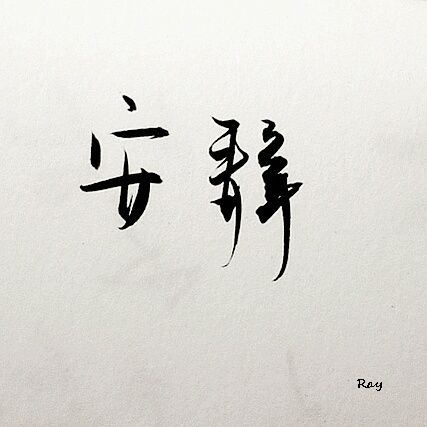 安静
Ray